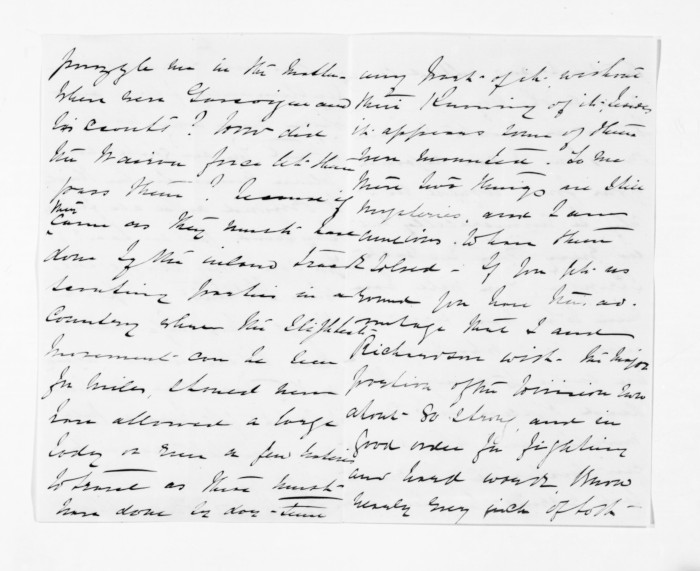 puzzle me in the matter
Where were Gascoigne and
his scouts? how did
the Wairoa force let them
pass them? because if
they
came as they must have
done by the inland track
scouting parties in a
country where the slightest
movement can be seen
for miles, should never
have allowed a large
body or even a few natives
to travel as these must
have done by day-time
any part of it without
their knowing of it. besides
it appears some of them
were mounted. To me
these two things are still
mysteries, and I am
anxious them
solved - If you fit us
round you have the ad-
vantage that I and
Richardson wish - the major
portion of the Division two
about 80 strong, and in
good order for fighting
and hard work. Know
nearly every inch of both